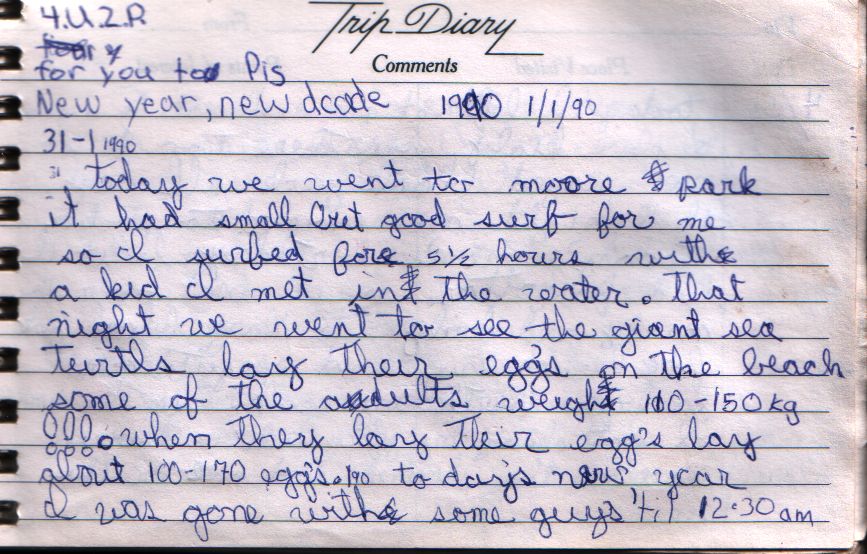 4.U.2.P.
Trip Diary
for you to Pis
Comments
New year, new dcade 1990 1/1/90
31-1 1990
31 today we went to moore park
it had small but good surf for me
so I surfed for 5½ hours with
a kid I met in the water. That
night we went to see the giant sea
turtls lay their egg's on the beach
some of the adults weigh 110-150kg
!!!. when they lay their egg's lay
about 100-170 egg's. 1/90 to day's new year
I was gone with some guys 'til 12:30am